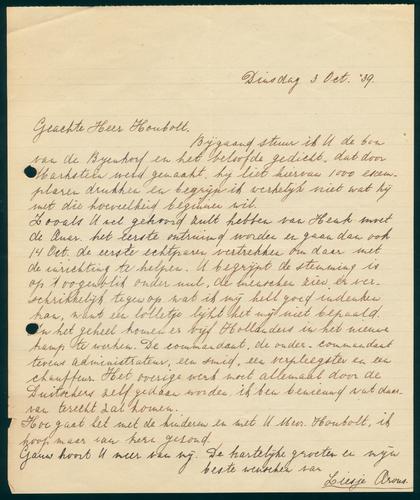 Dinsdag 3 Oct. '39.
Geachte Heer Houbolt.
Bijgaand stuur ik U de bon
van de Byenkorf en het beloofde gedicht, dat door
werd gemaakt, hij liet hiervan 1000 exem-
plaren drukken en begrijp ik werkelijk niet wat hij
met die hoeveelheid beginnen wil.
Zooals U wel gehoord zult hebben van Henk moet
de Quar. het eerste ontruimd worden en gaan dan ook
14 Oct. de eerste echtparen vertrekken om daar met
de inrichting te helpen. U begrijpt de stemming is
op 't oogenblik onder nul, de menschen zien er ver-
schrikkelijk tegen op, wat ik mij heel goed indenken
kan, want een lolletje lijkt het mij niet bepaald.
In het geheel komen er vijf Hollanders in het nieuwe
kamp te werken. De commandant, de onder-commandant
tevens administrateur, een smid, een verpleegster en een
chauffeur. Het overige werk moet allemaal door de
Duitschers zelf gedaan worden, ik ben benieuwd wat daar-
van terecht zal komen.
Hoe gaat het met de kinderen en met U Mevr. Houbolt, ik
hoop maar van hare gezond.
Gauw hoort U meer van mij. De hartelijke groeten en mijn
beste wenschen van
Liesje Arons.